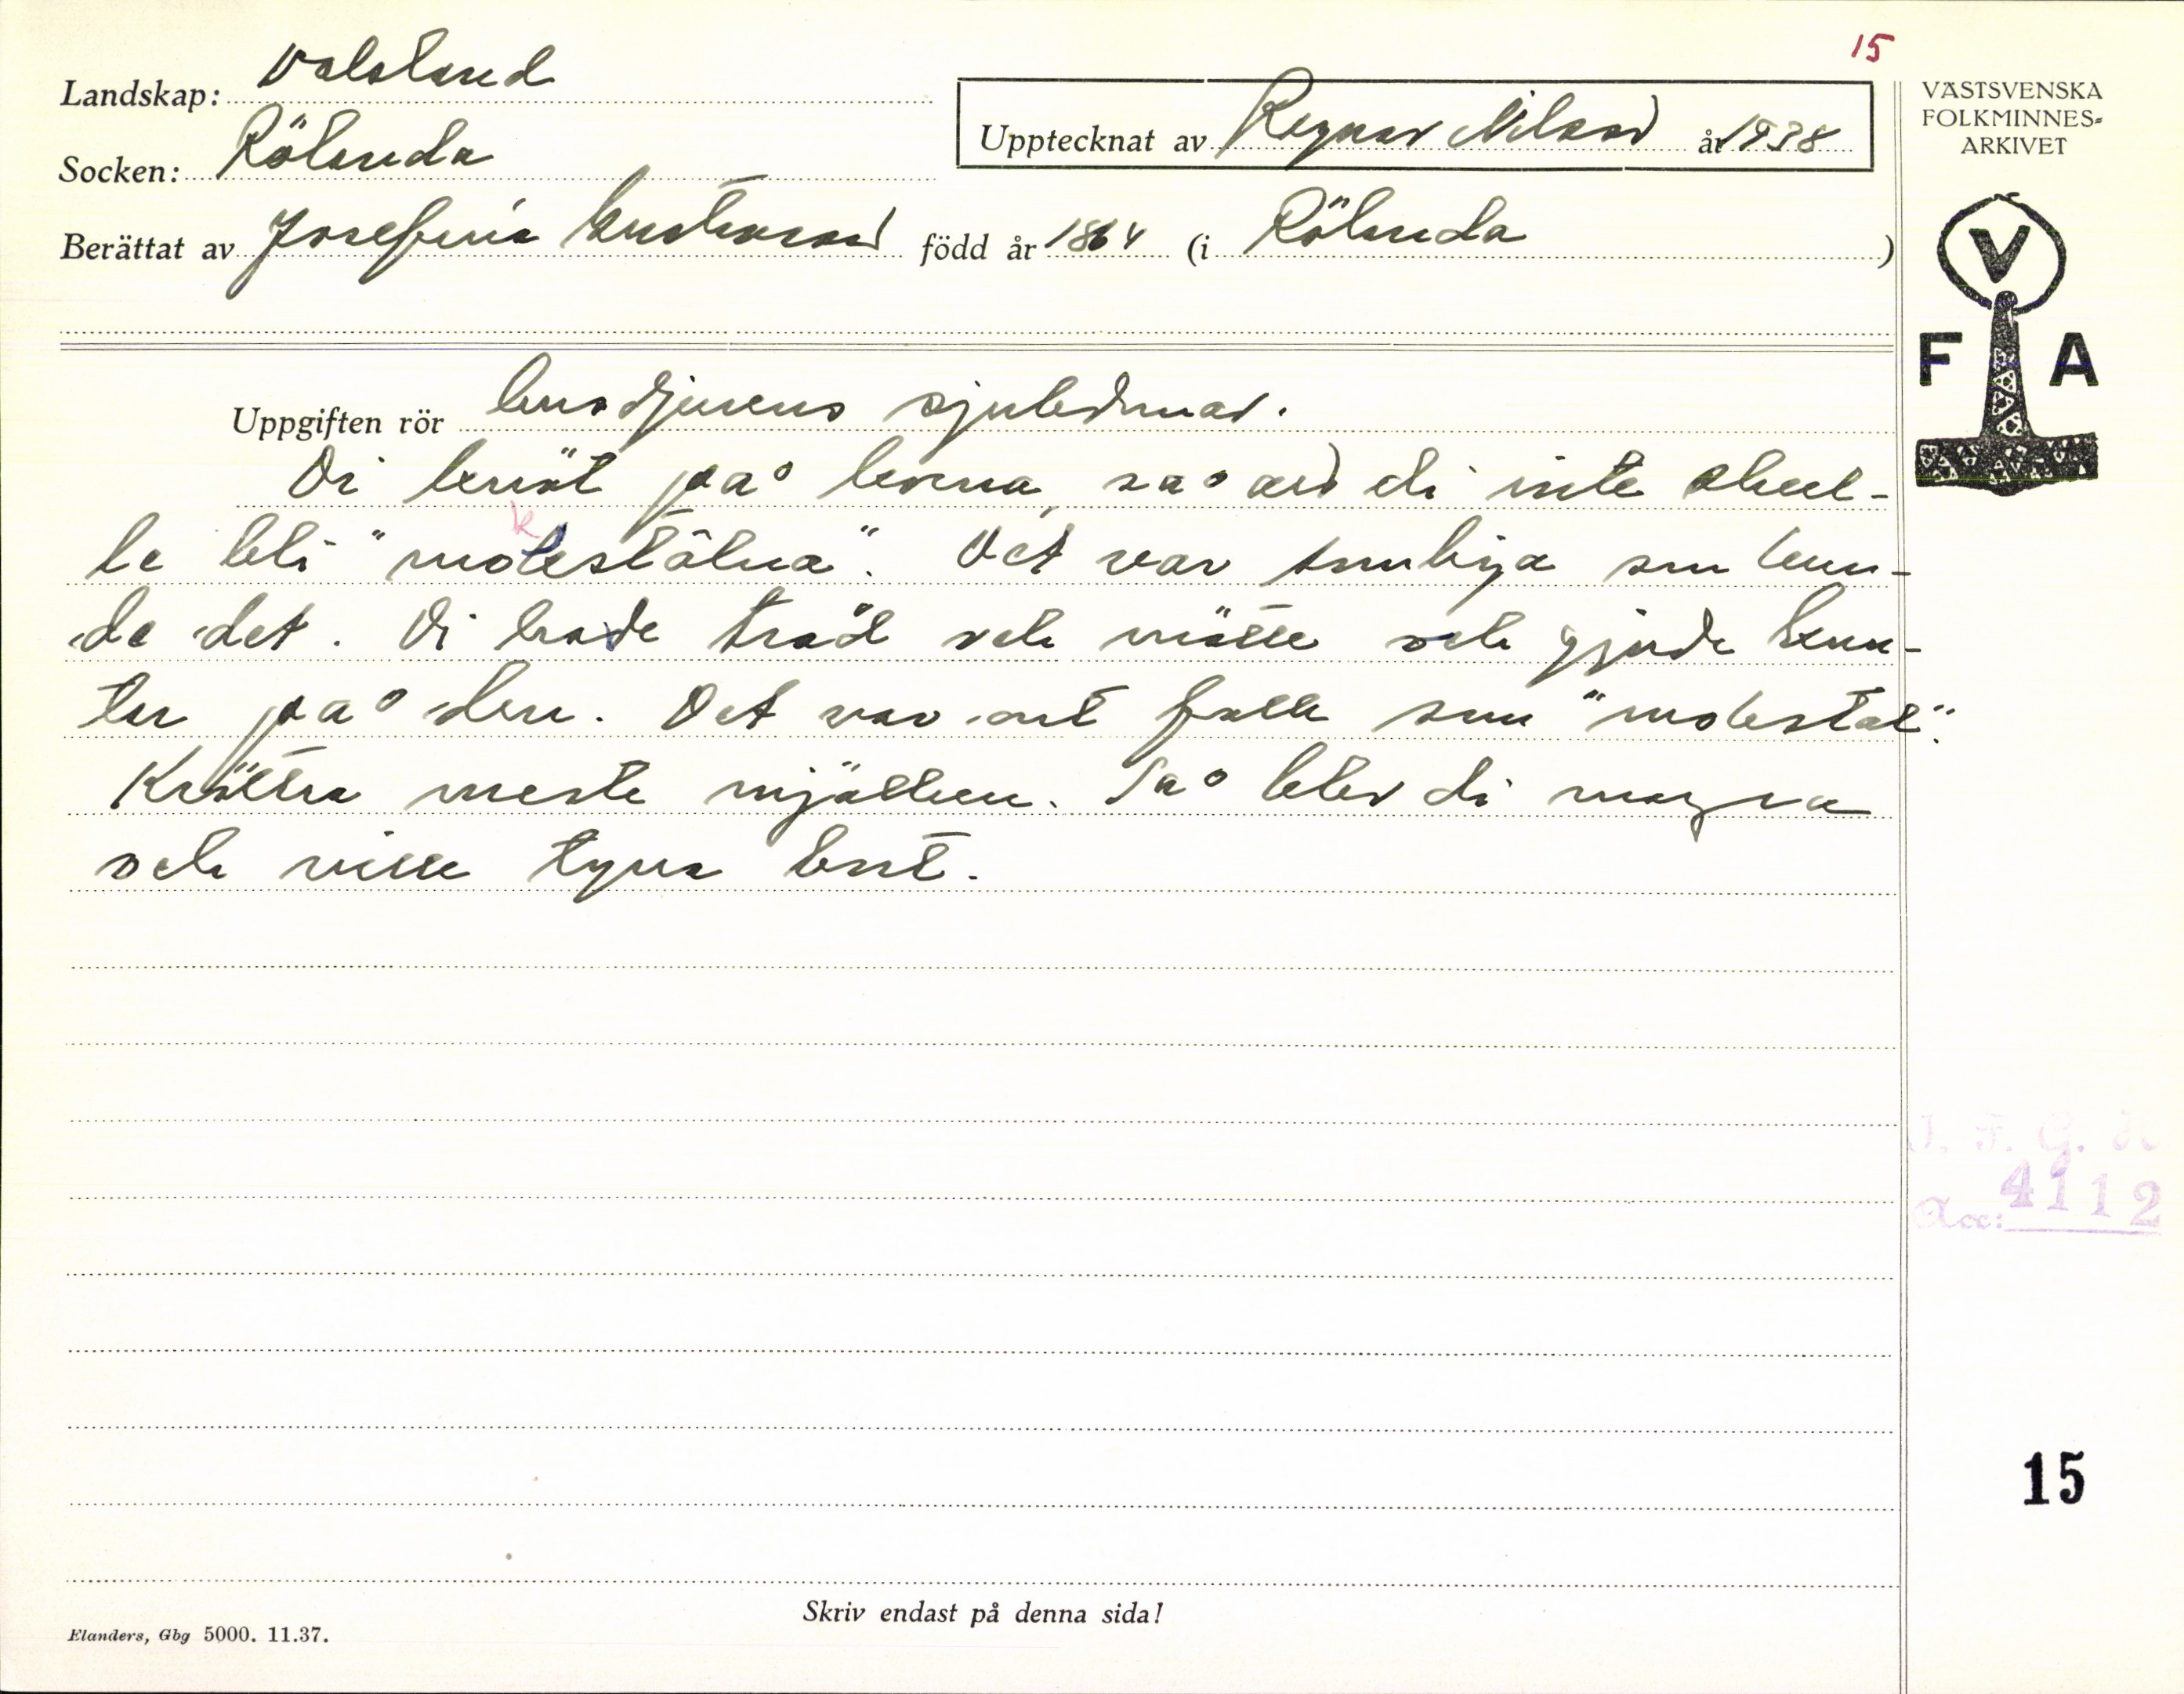 15
Landskap: Dalsland
Socken: Rölanda
Upptecknat av Ragnar Nilsson år 1938
Berättat av Josefina Gustavsson född år 1864 (i Rölanda)
VÄSTSVENSKA
FOLKMINNES=
ARKIVET
V
F A
Uppgiften rör husdjurens sjukdomar.
Di knöt på korna så att di inte skul-
le bli "mokestålna". Det var somliga som kun-
de det. Di hade tråd och mätte och gjorde knu-
tar på den. Det var ont folk som "mokestal".
Kröttra meste mjölken. Så blev di magra
och ville tyna bort.
I. F. G. H
Acc: 4112
15
Skriv endast på denna sida!
Elanders, Gbg 5000. 11.37.